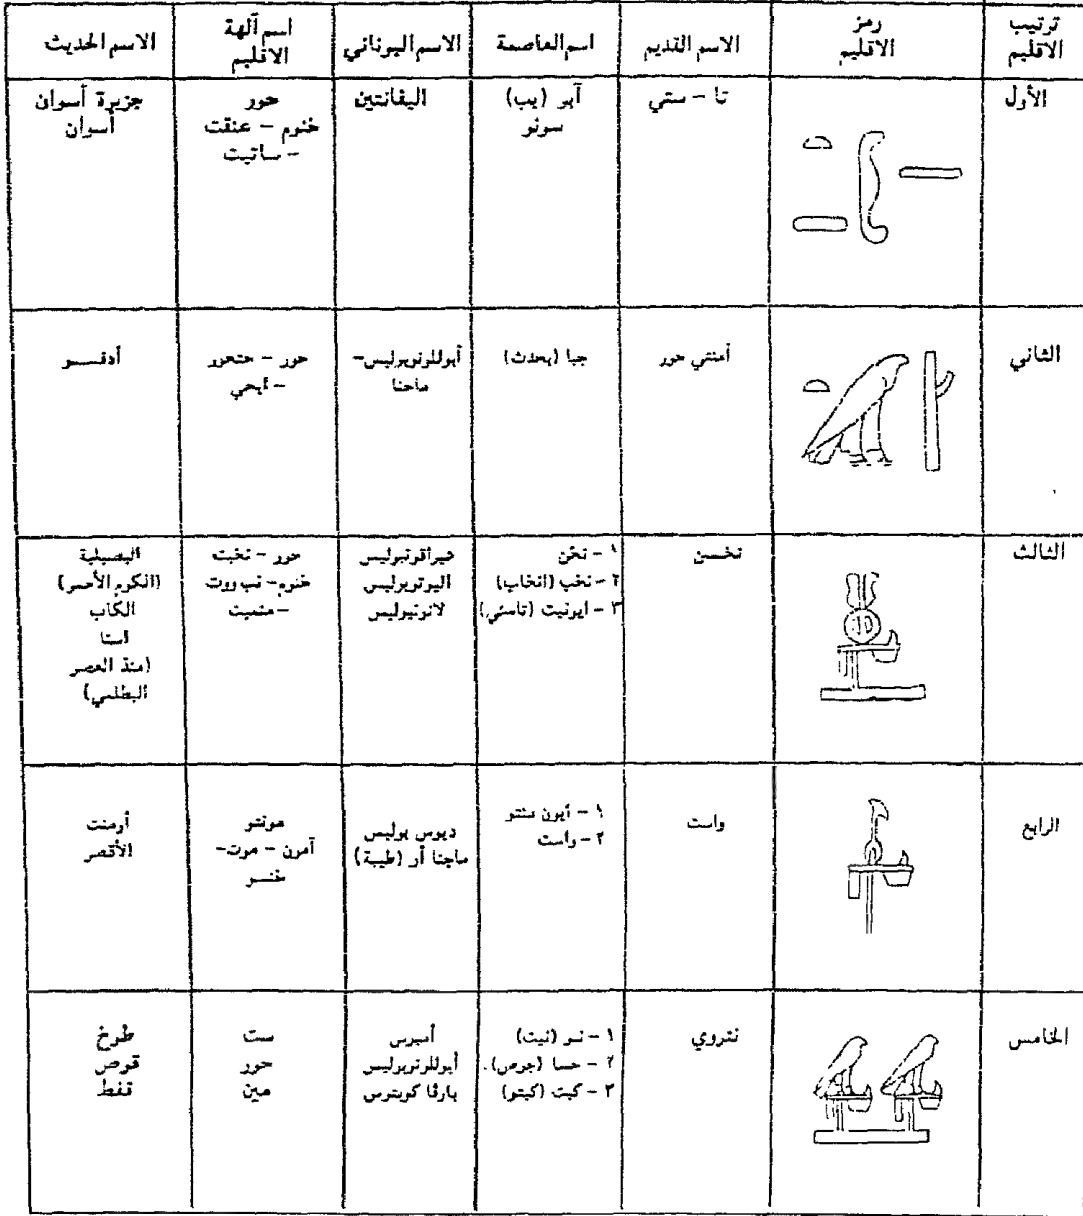 ترتيب الاقليم
رمز الاقليم
الاسم القديم
اسم العاصمة
الاسم اليوناني
اسم آلهة الاقليم
الاسم الحديث
الأول
تا - ستي
آبو (يب)
سونو
اليفانتين
حور
خنوم - عنقت
- ساتيت
جزيرة أسوان
أسوان
الثاني
أمنتي حور
جبا (بحدث)
أبوللونوبوليس-
ماجنا
حور - حتحور
- ايحي
أدفـــو
الثالث
نخـــن
١ - نخن
٢ - نخب (انخاب)
٣ - ايونيت (تاسني)
هيراقونبوليس
اليوتوبوليس
لاتوبوليس
حور - نخبت
خنوم - نب ووت
- منحيت
البصيلية
(الكوم الأحمر)
الكاب
اسنا
(منذ العصر
البطلمي)
الرابع
واست
١ - أيون منتو
٢ - واست
ديوس بوليس
ماجنا أو (طيبة)
مونتو
آمون - موت-
خنســو
أرمنت
الأقصر
الخامس
نتروي
١ - نبو (نبت)
٢ - حسا (جوص).
٣ - كبت (كبتو)
أمبوس
أبوللونوبوليس
بارڤا كوبتوس
ست
حور
مين
طوخ
قوص
قفط